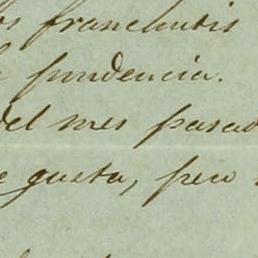 os franchutis
prudencia.
del mes pasad
gusta, pero